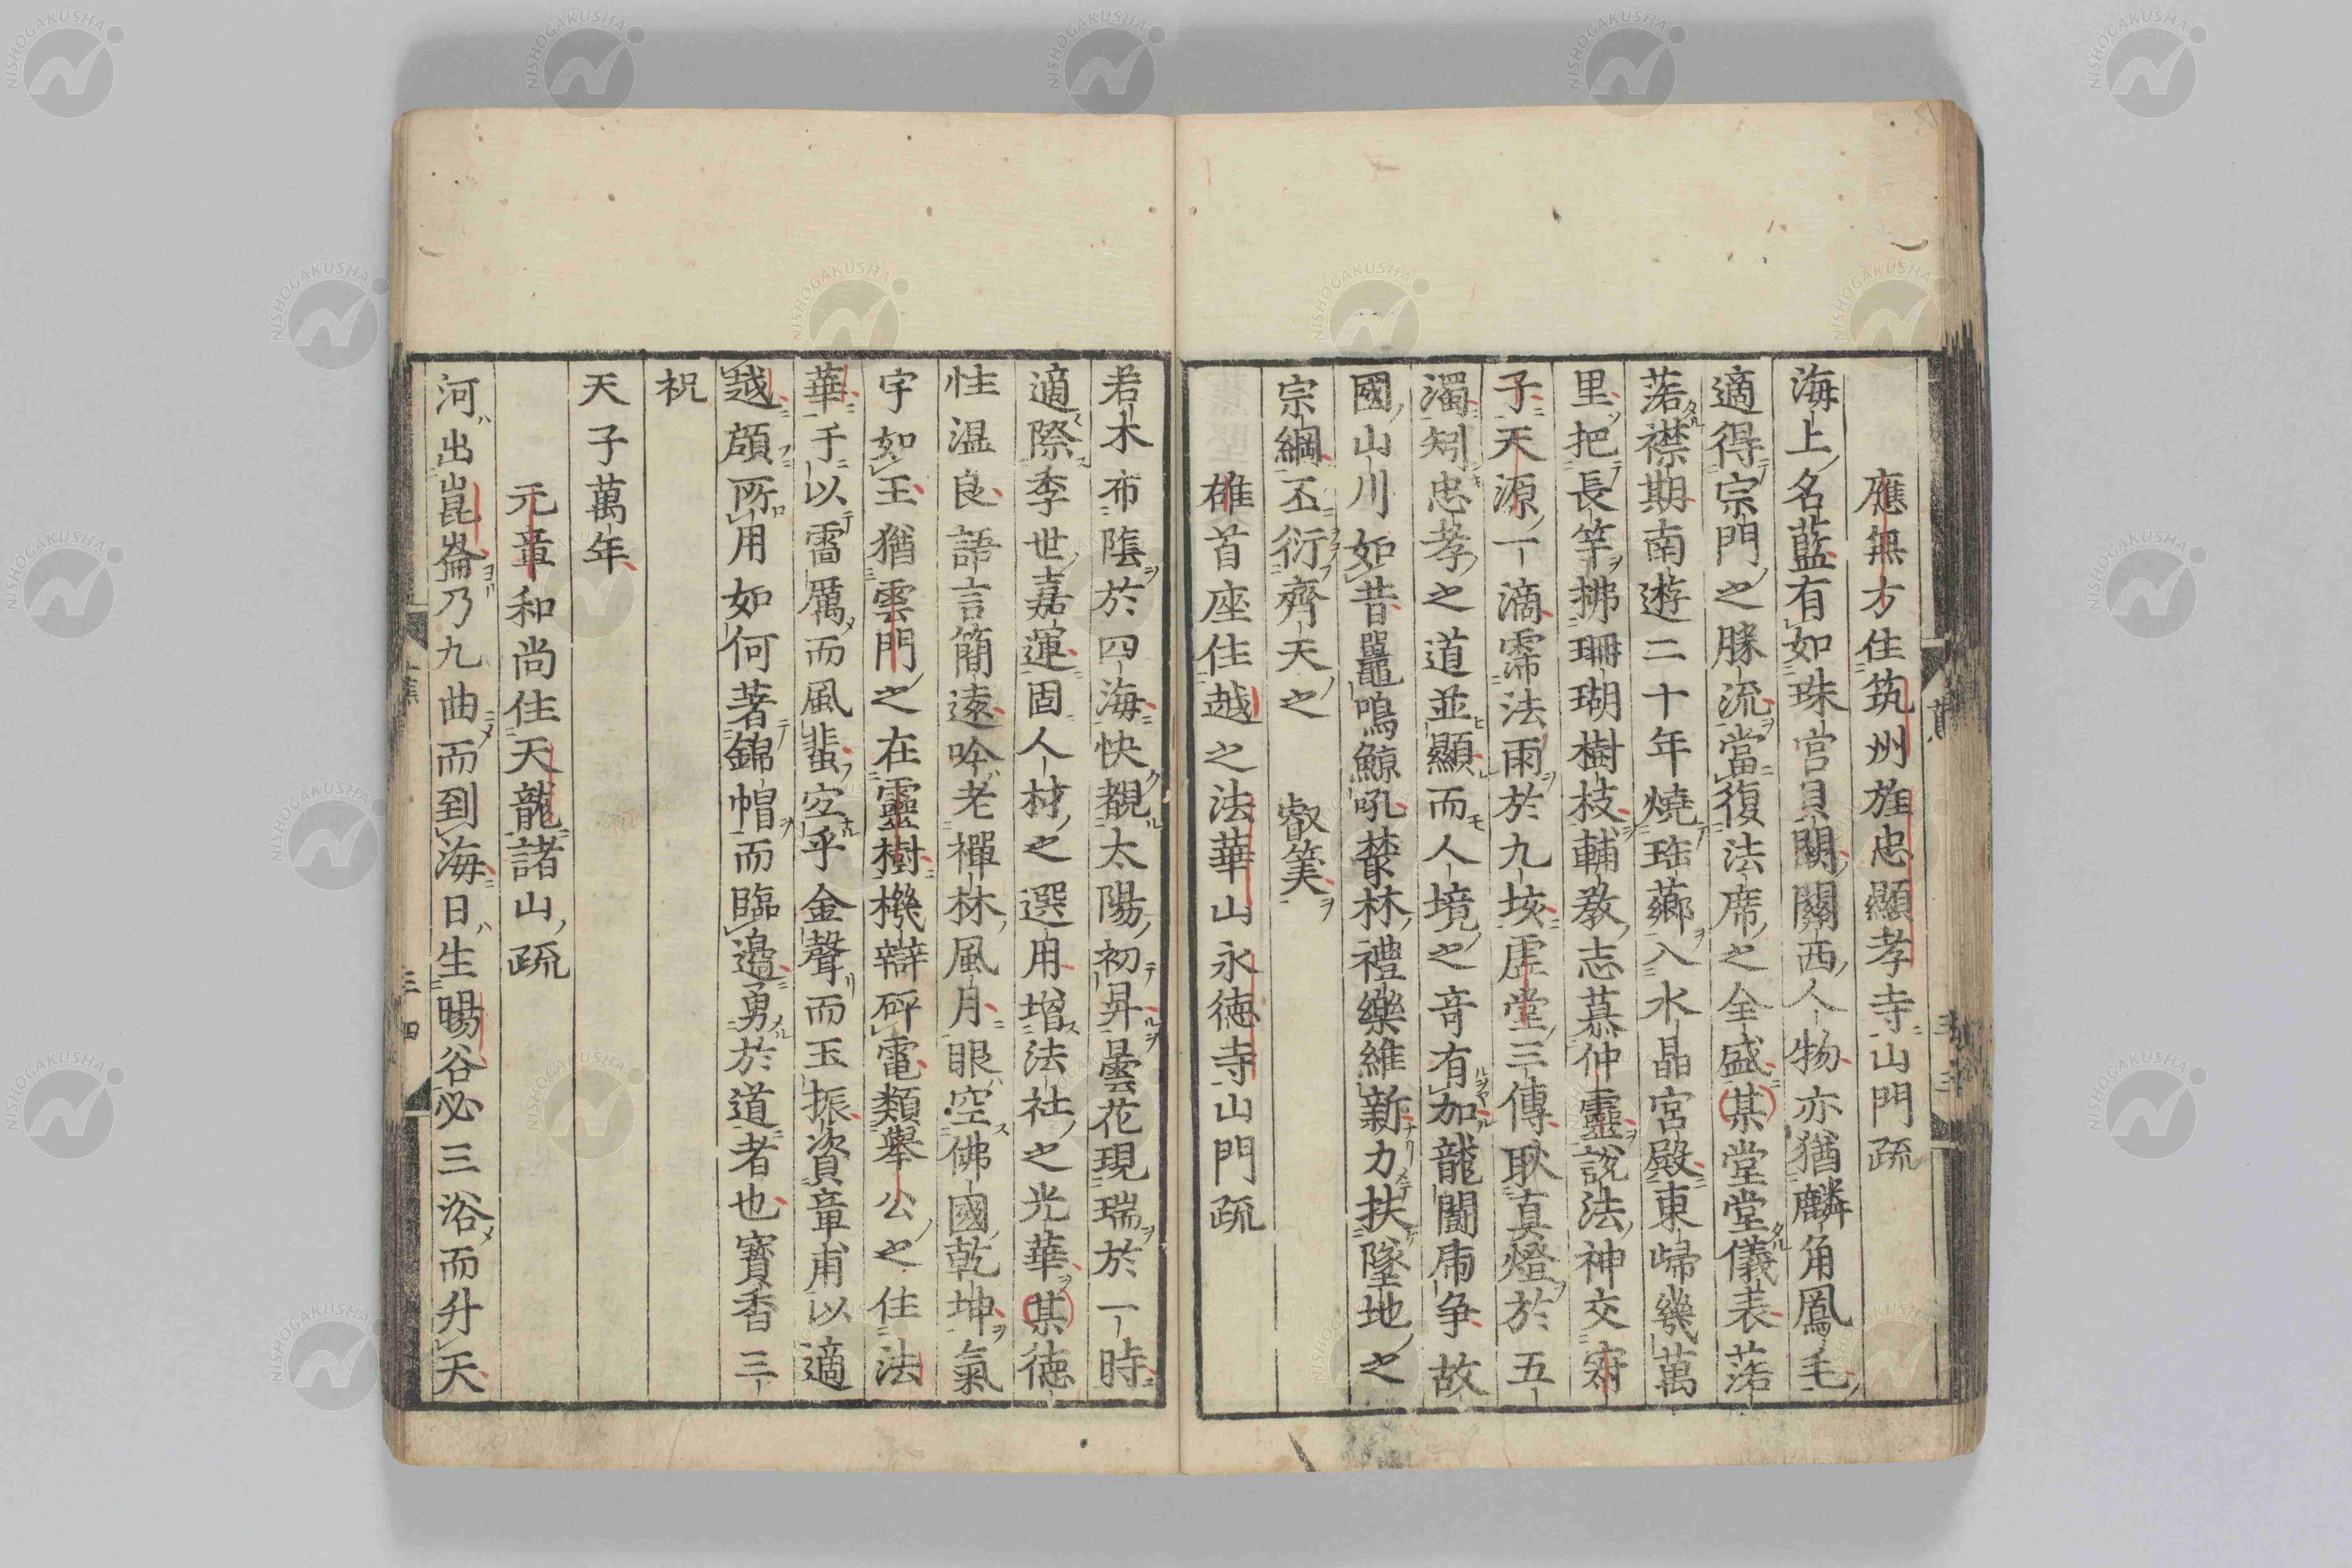 應無方住筑州旌忠顯孝寺山門疏
海上名藍有如珠宮貝闕關西人物亦猶麟角鳳毛
適得宗門之勝流當復法席之全盛某堂堂儀表落
落襟期南遊二十年燒臨薌入水晶宮殿東歸幾萬
里把長竿拂珊瑚樹枝輔教志慕仲靈說法神交密
子天源一滴霈法雨於九垓虗堂三傳耿真燈於五
濁矧忠孝之道並顯而人境之奇有加龍闘乕争故
國山川如昔鼉鳴鯨吼叢林禮樂維新力扶墜地之
宗綱丕衍齊天之　　叡筭
雄首座住越之法華山永德寺山門疏
若木布蔭於四海快覩太陽初昇曇花現瑞於一時
適際季世嘉運固人材之選用增法社之光華某德
性温良語言簡遠吟老禪林風月眼空佛國乾坤氣
宇如王猶雲門之在靈樹機辯砰電類舉公之住法
華于以雷厲而風蜚空乎金聲而玉振資章甫以適
越頋所用如何著錦帽而臨邊勇於道者也寶香三
祝
天子萬年
元章和尚住天龍諸山疏
河出崑崙乃九曲而到海日生暘谷必三浴而升天
蕉
三四